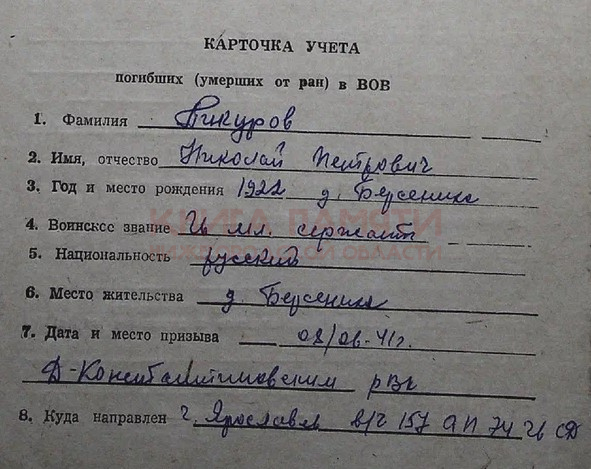 КАРТОЧКА УЧЕТА
погибших (умерших от ран) в ВОВ
1. Фамилия Пикуров
2. Имя, отчество Николай Петрович
3. Год и место рождения 1922 д. Берсениха
КНИГА ПАМЯТИ
4. Воинское звание Гв мл. сержант
НИЖЕГОРОДСКОЙ ОБЛАСТИ
5. Национальность русский
6. Место жительства д. Берсениха
7. Дата и место призыва 08/08-41г.
Д-Константиновским рвк
8. Куда направлен г. Ярославль в/ч 157 АП 74 Гв СД